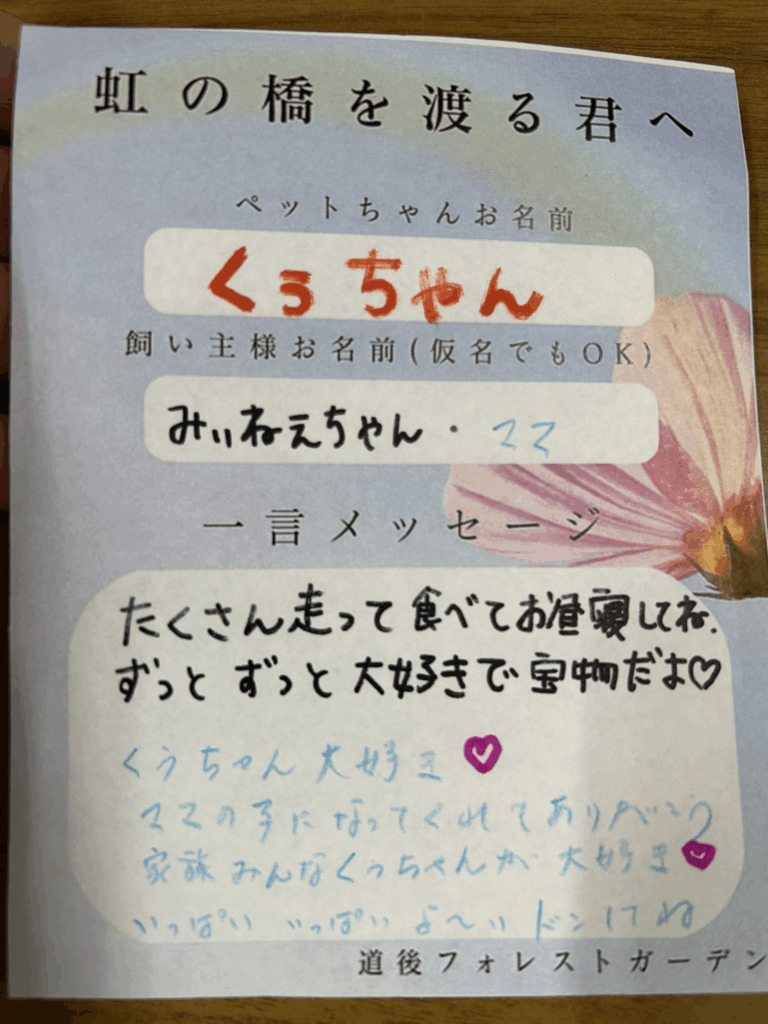 虹の橋を渡る君へ
ペットちゃんお名前
くぅちゃん
飼い主様お名前(仮名でもOK)
みぃねえちゃん・ママ
一言メッセージ
たくさん走って食べてお昼寝してね.
ずっとずっと大好きで宝物だよ♡
くうちゃん大好き♡
ママの子になってくれてありがとう
家族みんなくぅちゃんが大好き♡
いっぱいいっぱいよ〜い してね
道後フォレストガーデン